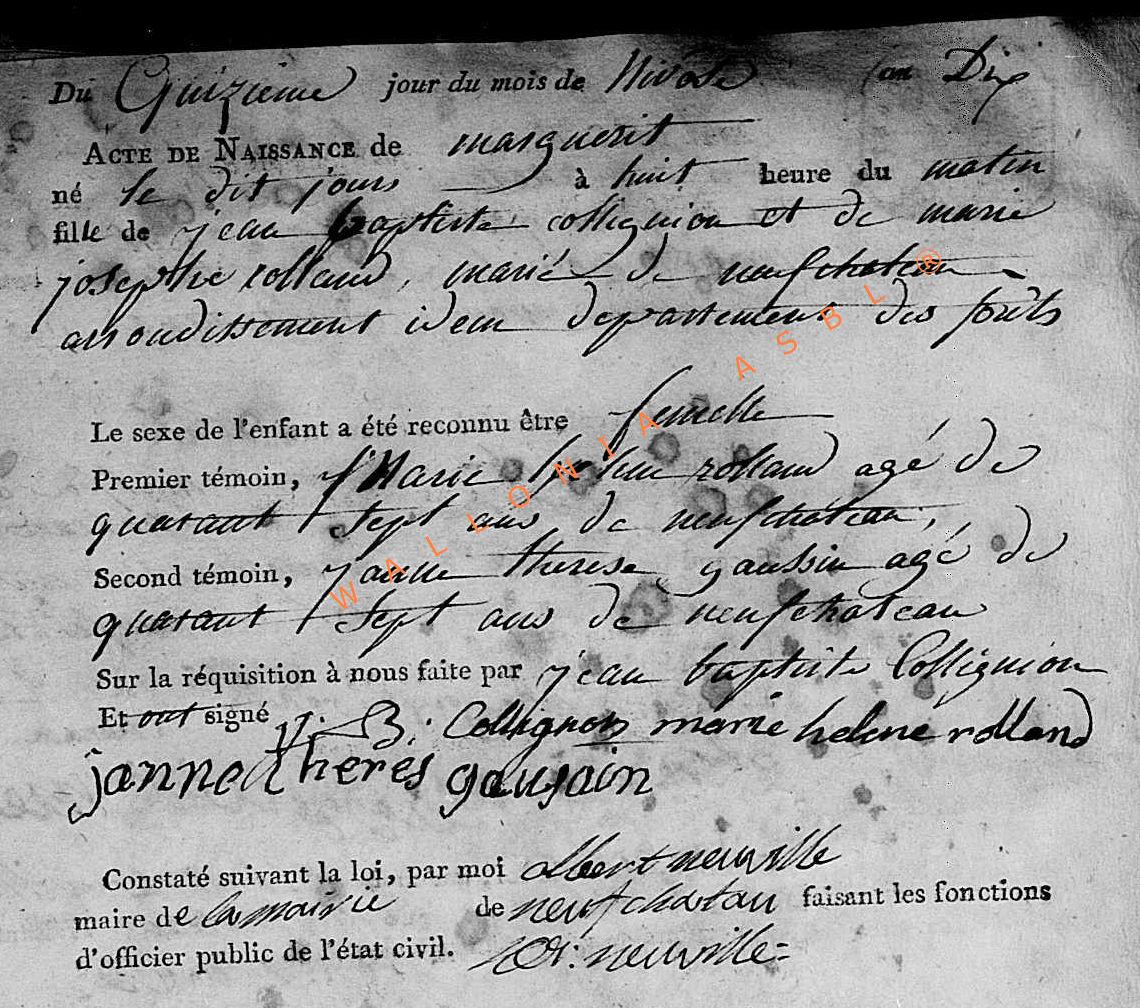 Du Quizieme jour du mois de Nivose l'an Dix
ACTE DE NAISSANCE de marguerit
né le dit jours à huit heure du matin
fille de jean baptiste collignion et de marie
josephe rolland, marié de neufchateau
arrondissement idem departement des forêts
Le sexe de l'enfant a été reconnu être femelle
Premier témoin, Marie helene rolland agé de
quarant sept ans de neufchateau,
Second témoin, janne therese gaussin agé de
quarant sept ans de neufchateau
Sur la réquisition à nous faite par jean baptiste Collignion
Et ont signé J: B: Collignon marie helene rolland
janne theres gausain
Constaté suivant la loi, par moi albert neuville
maire de la mairie de neufchatau faisant les fonctions
d'officier public de l'état civil. neuville
WALLONIA ASBL ®